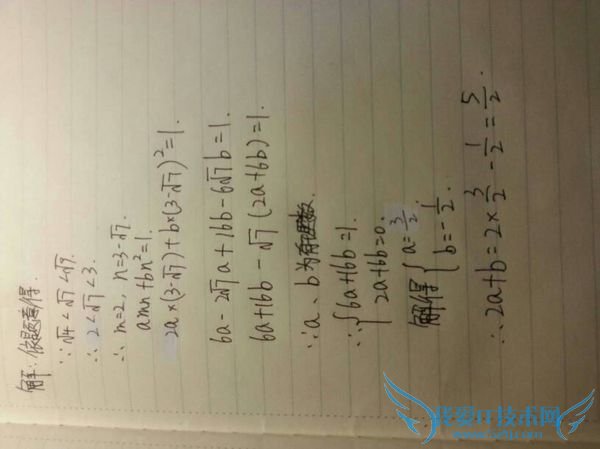 解：依题意得
∵√4<√7<√9.
∴2<√7<3.
∴m=2, n=3-√7.
amn+bn²=1.
2a×(3-√7)+b×(3-√7)²=1.
6a-2√7a+16b-6√7b=1.
6a+16b-√7(2a+6b)=1.
∵a、b为有理数.
∴{6a+16b=1.
2a+6b=0.
解得{a=3/2.
b=-1/2.
∴2a+b=2×3/2-1/2=5/2.
我爱IT技术网